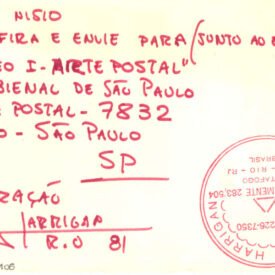 NISIO
FIRA E ENVIE PARA (JUNTO AO E
EO I-ARTE POSTAL"
BIENAL DE SÃO PAULO
E POSTAL-7832
O - SÃO PAULO
SP
RAÇÃO
HARRIGAN
R.O 81
HARRIGAN
226-7350
MENTE 283,504
TAFOGO
- RIO - RJ
BRASIL